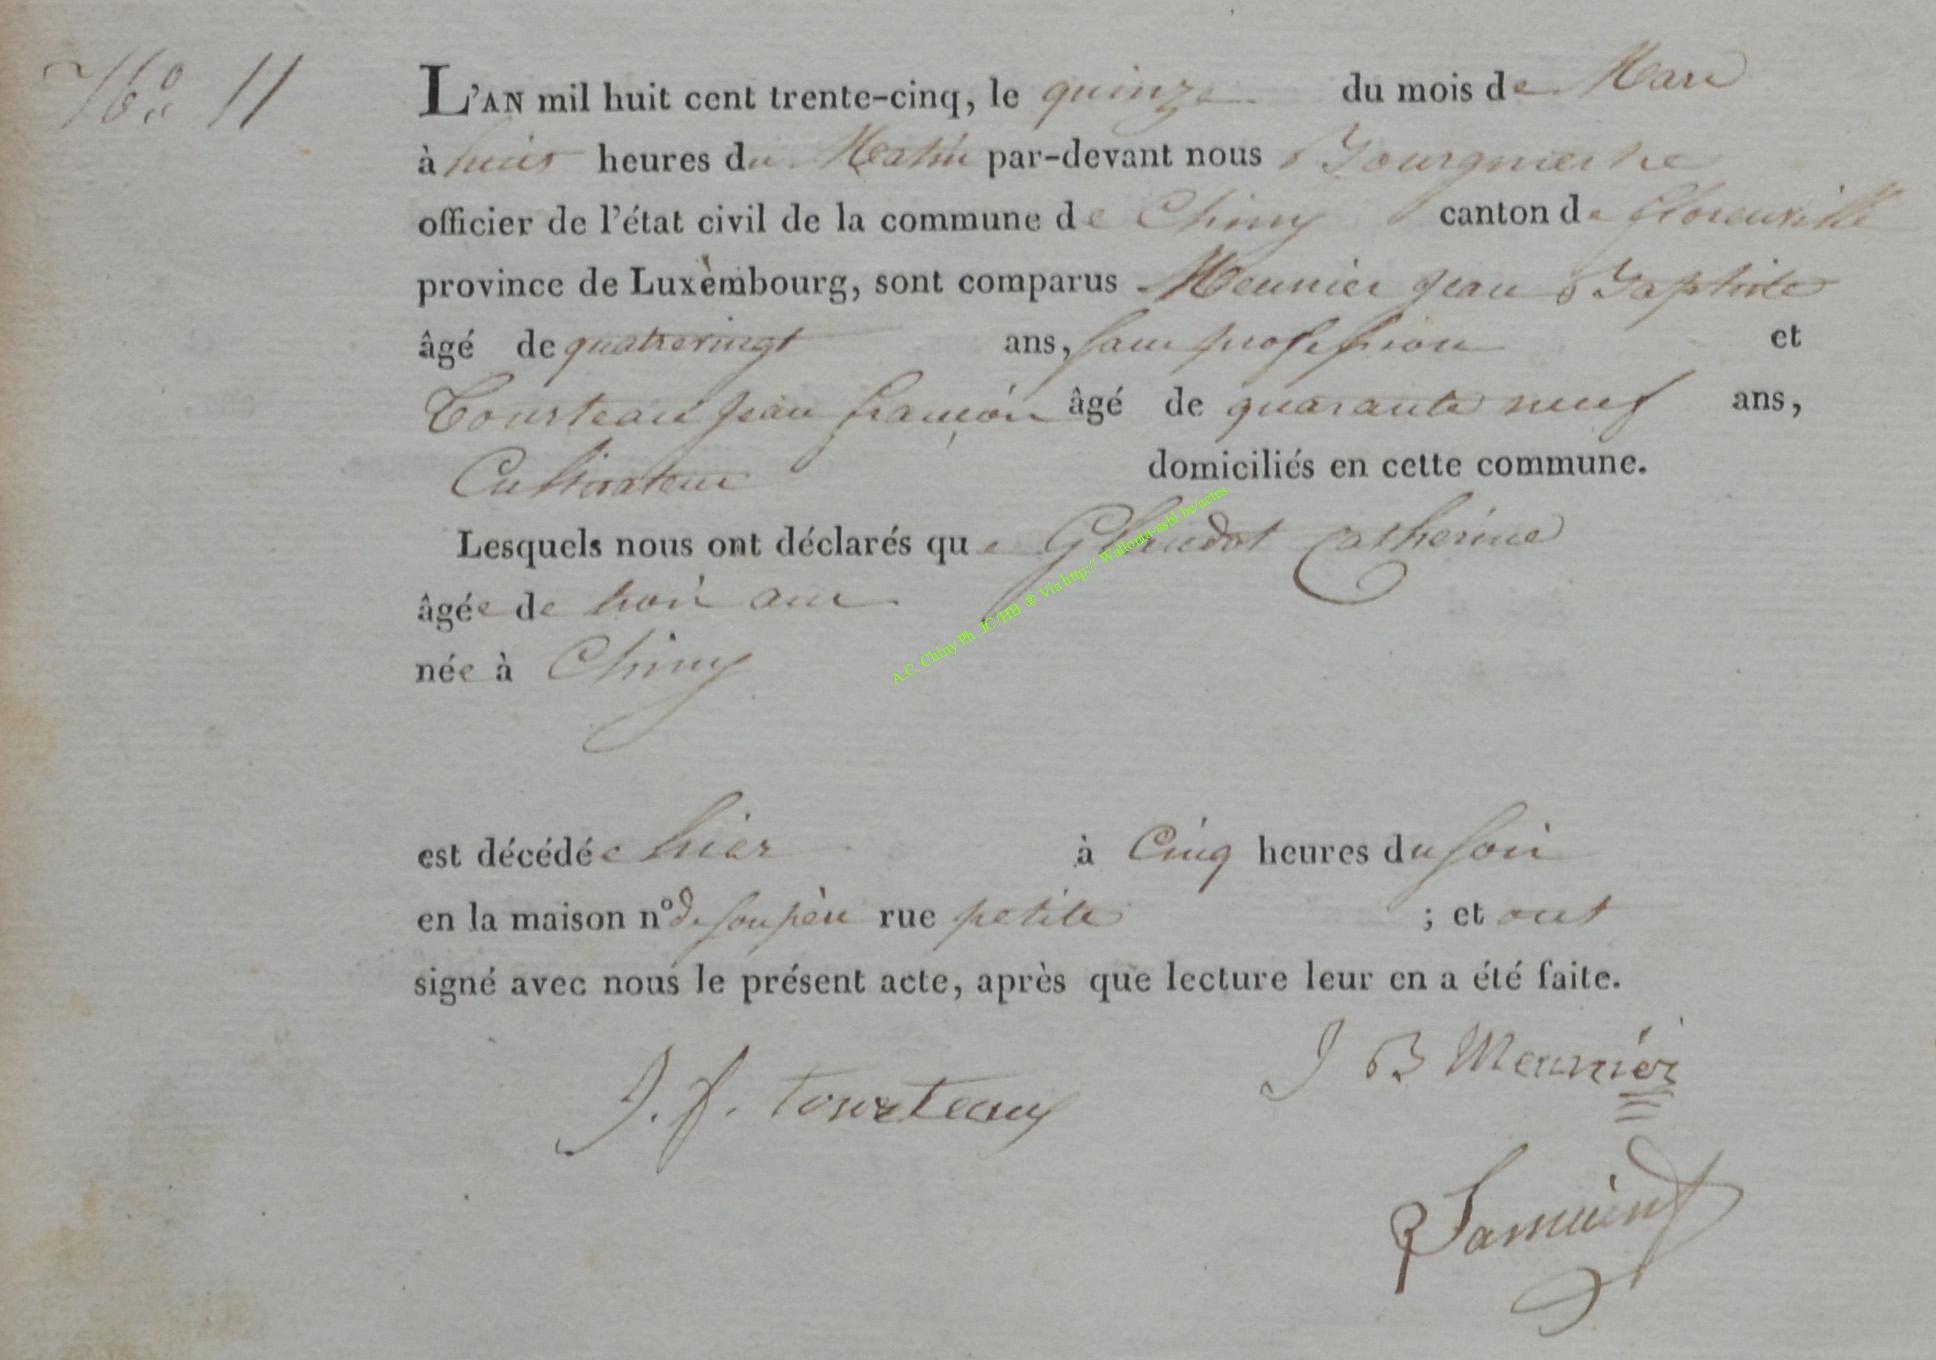 No. 11
L'AN mil huit cent trente-cinq, le quinze du mois de Mars
à huit heures du Matin par-devant nous Bourgmestre
officier de l'état civil de la commune de Chiny canton de florenville
province de Luxèmbourg, sont comparus Meunier Jean Baptiste
âgé de quatrevingt ans, sans profession et
Tourteau Jean françois âgé de quarante neuf ans,
Cultivateur domiciliés en cette commune.
Lesquels nous ont déclarés que Glaudot Catherine
âgée de trois ans
née à Chiny
est décédée hier à Cinq heures du soir
en la maison n° de son père rue petite ; et ont
signé avec nous le présent acte, après que lecture leur en a été faite.
J. f. tourteaux
J B Meunier
A.C. Chiny Ph. JC/HB & Via http:// Wallonia-asbl.be/actes